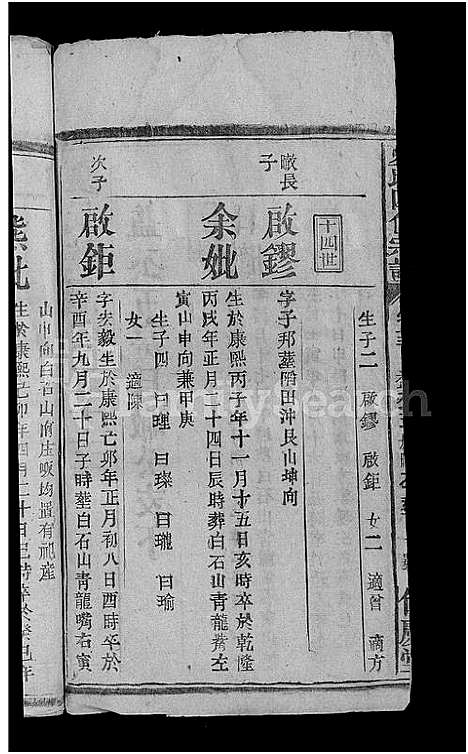 生子二 啟鏐 啟鉅 女二 適曾 適方
十四世
畯長子
啟鏐
字子邦墓陪田沖艮山坤向
余妣
生於康熙丙子年十一月十五日亥時卒於乾隆
丙戌年正月二十四日辰時葬白石山青龍嘴左
寅山申向兼甲庚
生子四 曰理 曰璨 曰瓏 曰瑜
女一 適陳
次子
啟鉅
字安毅生於康熙己卯年正月初八日酉時卒於
辛酉年九月二十日子時塟白石山青龍嘴右寅
山申向白石山
均置有祀産
熊妣
生於康熙己卯年四月二十日巳時卒於癸巳年